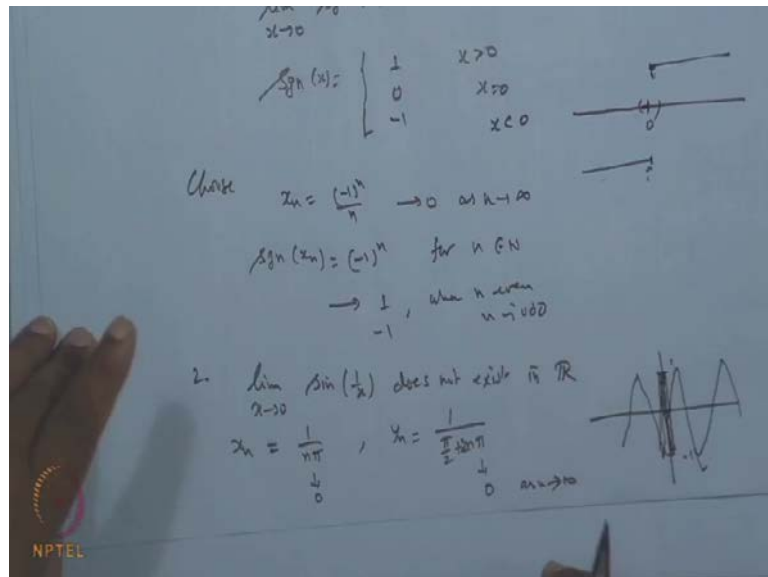 x→0
Sgn (x) = { 1 x>0
0 x=0
-1 x<0
0
Choose xn = (-1)^n / n → 0 as n→∞
Sgn (xn) = (-1)^n for n ∈ N
→ 1, when n even
-1 n is odd
2. lim x→0 sin (1/x) does not exist in R
xn = 1/nπ ,
↓ ↓
0 0 as n→∞
1
-1
NPTEL